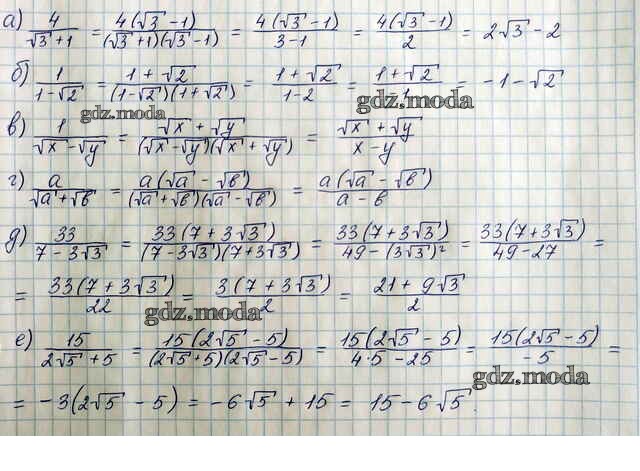 а) 4/(√3 + 1) = 4(√3 - 1)/((√3 + 1)(√3 - 1)) = 4(√3 - 1)/(3 - 1) = 4(√3 - 1)/2 = 2√3 - 2
б) 1/(1 - √2) = (1 + √2)/((1 - √2)(1 + √2)) = (1 + √2)/(1 - 2) = (1 + √2)/(-1) = -1 - √2
gdz.moda
gdz.moda
в) 1/(√x - √y) = (√x + √y)/((√x - √y)(√x + √y)) = (√x + √y)/(x - y)
г) a/(√a + √b) = a(√a - √b)/((√a + √b)(√a - √b)) = a(√a - √b)/(a - b)
д) 33/(7 - 3√3) = 33(7 + 3√3)/((7 - 3√3)(7 + 3√3)) = 33(7 + 3√3)/(49 - (3√3)²) = 33(7 + 3√3)/(49 - 27) =
= 33(7 + 3√3)/22 = 3(7 + 3√3)/2 = (21 + 9√3)/2
gdz.moda
е) 15/(2√5 + 5) = 15(2√5 - 5)/((2√5 + 5)(2√5 - 5)) = 15(2√5 - 5)/(4·5 - 25) = 15(2√5 - 5)/(-5) =
gdz.moda
= -3(2√5 - 5) = -6√5 + 15 = 15 - 6√5.